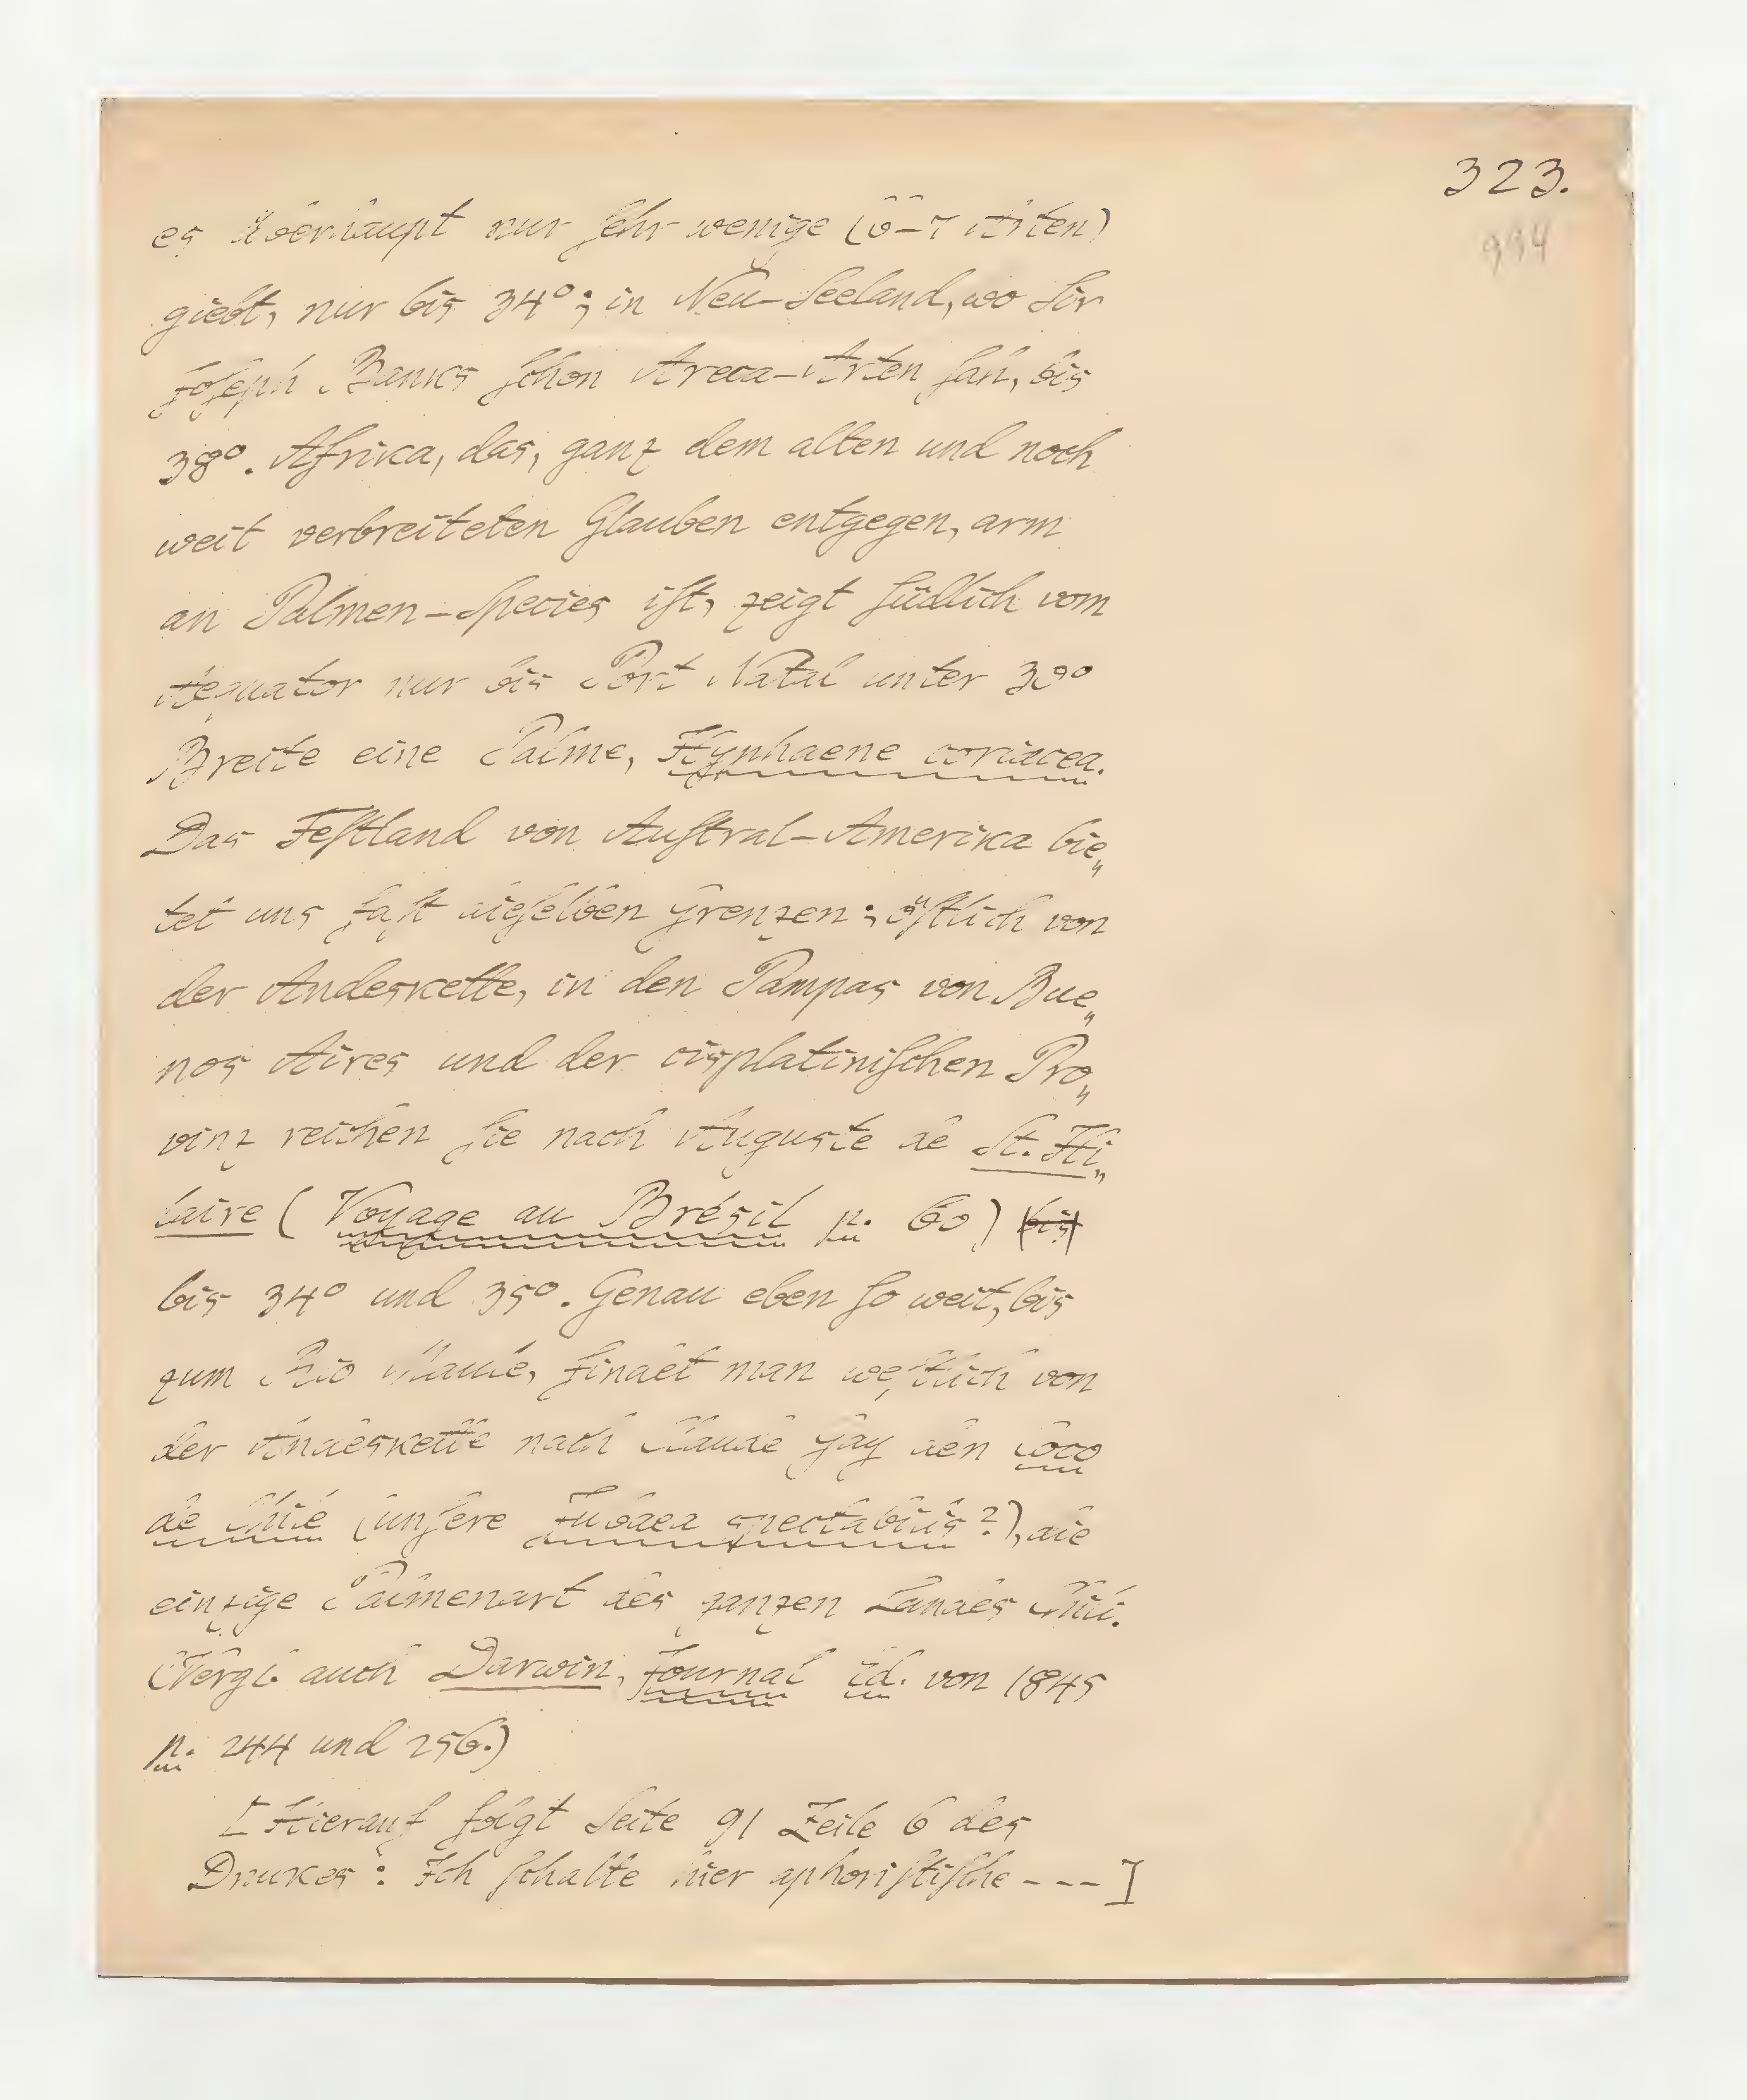 323.
994
es überhaupt nur ſehr wenige (6–7 Arten)
giebt, nur bis 34°; in Neu-Seeland, wo Sir
Joſeph Banks ſchon Areca-Arten ſah, bis
38°. Afrika, das, ganz dem alten und noch
weit verbreiteten Glauben entgegen, arm
an Palmen-Species iſt, zeigt ſüdlich vom
Aequator nur bis Port Natal unter 30°
Breite eine Palme, Hyphaene coriacea.
Das Feſtland von Auſtral-Amerika bie„
tet uns faſt dieſelben Grenzen: öſtlich von
der Andeskette, in den Pampas von Bue„
nos Aires und der cisplatiniſchen Pro„
vinz reichen ſie nach Auguste de St. Hi„
laire (Voyage au Brésil p. 60) bis
bis 34° und 35°. Genau eben ſo weit, bis
zum Rio Maule, findet man weſtlich von
der Andeskette nach Claude Gay den coco
de Chile (unſere Jubaea spectabilis?), die
einzige Palmenart des ganzen Landes Chili.
(Vergl. auch Darwin, Journal Ed. von 1845
p. 244 und 256.)
[Hierauf folgt Seite 91 Zeile 6 des
Druckes: Ich ſchalte hier aphoriſtiſche - - - ]